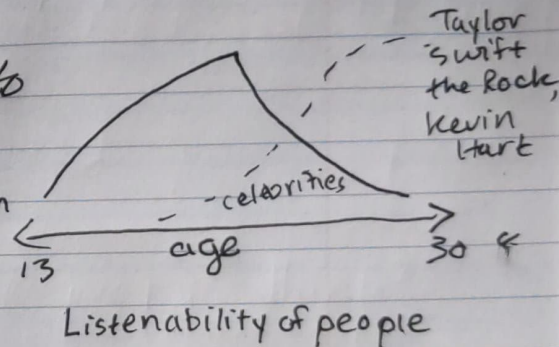 Taylor
Swift
the Rock,
Kevin
Hart
celebrities
age
13
30
Listenability of people